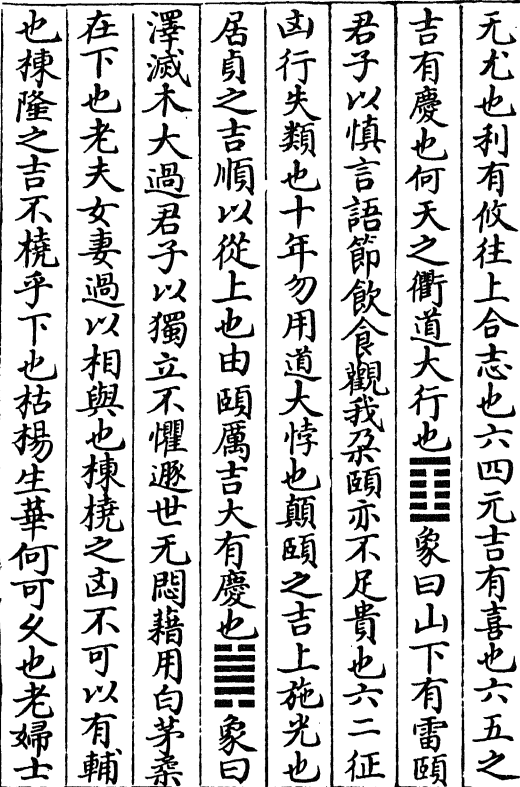 无尤也利有攸往上合志也六四元吉有喜也六五之
吉有慶也何天之衢道大行也䷚象曰山下有雷頤
君子以慎言語節飲食觀我朶頤亦不足貴也六二征
凶行失類也十年勿用道大悖也顛頤之吉上施光也
居貞之吉順以從上也由頤厲吉大有慶也䷛象曰
澤滅木大過君子以獨立不懼遯世无悶藉用白茅柔
在下也老夫女妻過以相與也棟橈之凶不可以有輔
也棟隆之吉不橈乎下也枯楊生華何可久也老婦士